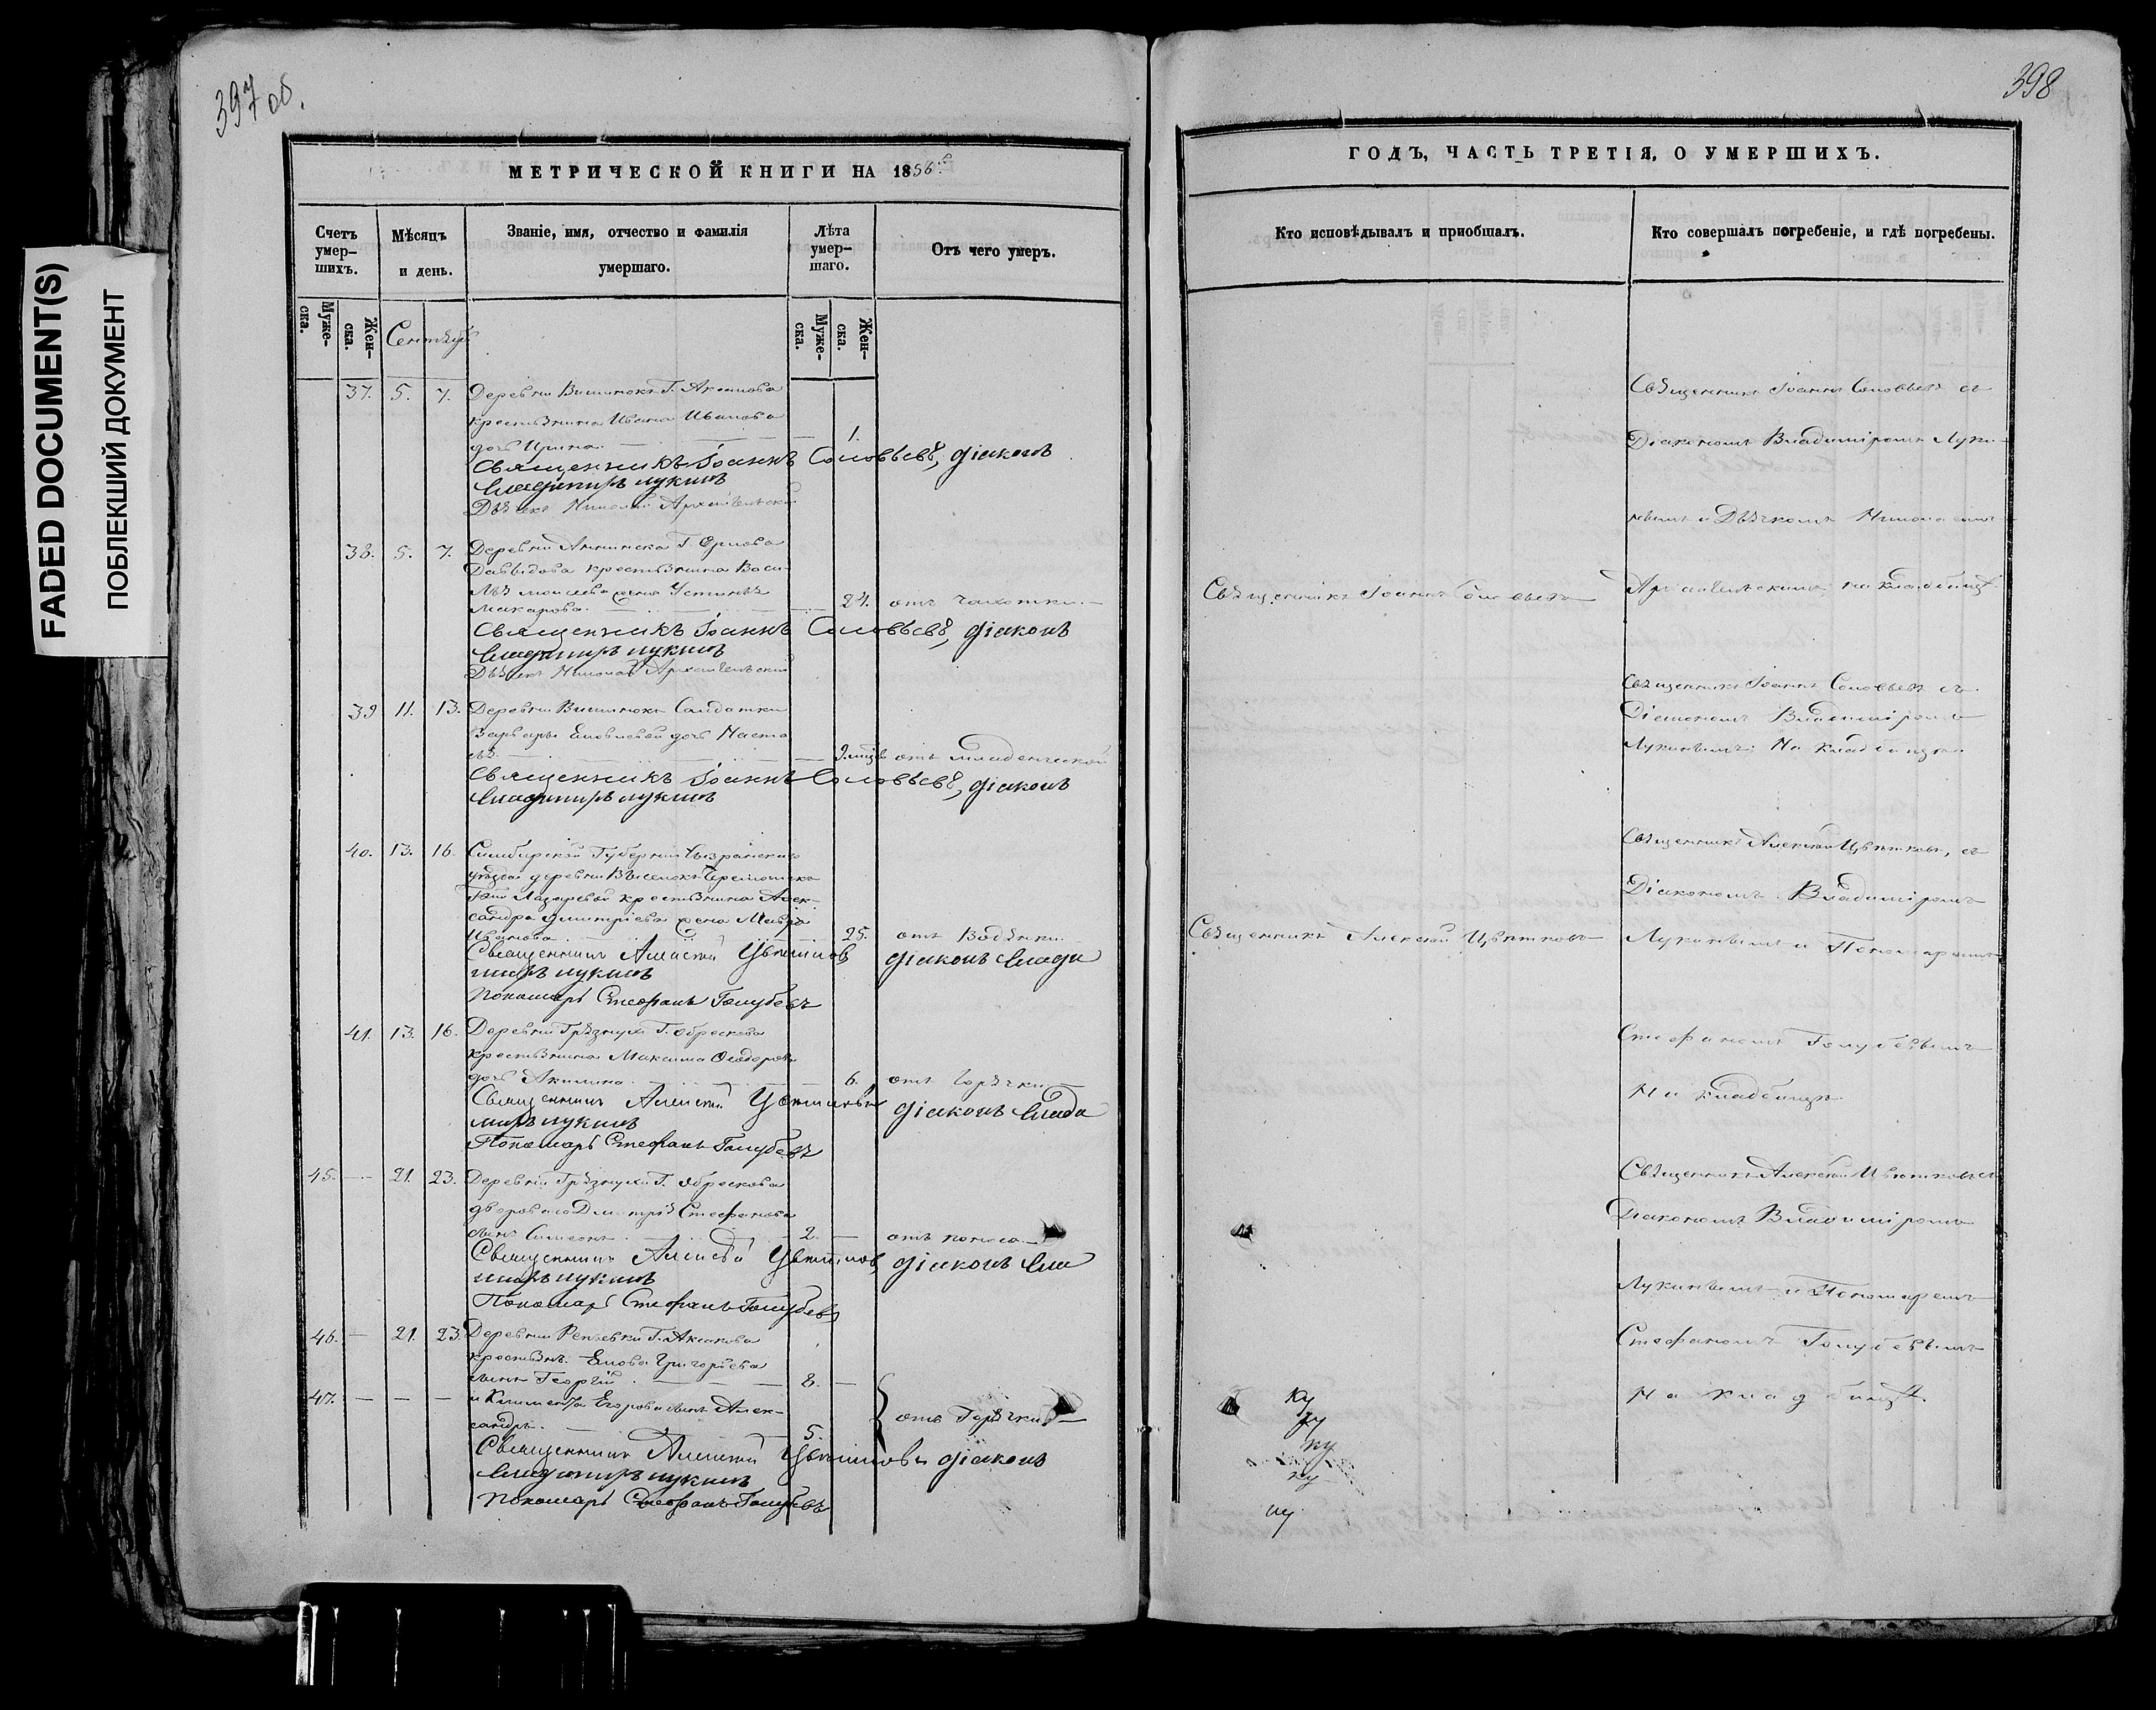 397 об.
МЕТРИЧЕСКОЙ КНИГИ НА 1856
Счетъ умер-шихъ.
Мѣсяцъ и день.
Званіе, имя, отчество и фамилія умершаго.
Лѣта умер-шаго.
Отъ чего умеръ.
Муже-ска.
Жен-ска.
Муже-ска.
Жен-ска.
37. 5. 7. Деревни Вишенокъ Г. Аксакова
крестьянина Ивана Иванова
дочь Ирина. 1.
Священникъ Іоаннъ Соловьевъ, діаконъ
Владимиръ Лукинъ
Дьячекъ Николай Архангельскій
38. 5. 7. Деревни Аннинска Г. Орлова
Давыдова крестьянина Васи-
жена Устинья
Макарова. 24. отъ чахотки.
Священникъ Іоаннъ Соловьевъ, діаконъ
Владимиръ Лукинъ
Дьячекъ Николай Архангельскій
39 11. 13. Деревни Вишенокъ Солдатки
Варвары дочь Наста
9 мцѣв отъ младенческой
Священникъ Іоаннъ Соловьевъ, діаконъ
Владимиръ Лукинъ
40. 13. 16. Симбирской Губерніи Сызранскаго
уѣзда деревни
Лазаревой крестьянина Алек-
сандра Дмитріева жена Мавра
Иванова 25. отъ Водянки.
Священникъ Алексѣй Цвѣтковъ, діаконъ Влади
миръ Лукинъ
Пономарь Стефанъ Голубевъ
41. 13. 16. Деревни Грязнухи Г. Обрескова
крестьянина Максима Ѳеодорова
дочь Акилина 6. отъ Горячки
Священникъ Алексѣй Цвѣтковъ діаконъ Влади
миръ Лукинъ
Пономарь Стефанъ Голубевъ
45. — 21. 23. Деревни Грязнухи Г. Обрескова
двороваго Дмитрія Стефанова
сынъ Симеонъ 2. — отъ поноса
Священникъ Алексѣй Цвѣтковъ, діаконъ Вла
миръ Лукинъ
Пономарь Стефанъ Голубевъ
46. — 21. 23. Деревни Репьевки Г. Аксакова
крестьянъ Григорьева
сынъ Георгій 8. —
47. — — — и Климента Егорова сынъ Алек-
сандръ. 5. отъ Горячки
Священникъ Алексѣй Цвѣтковъ діаконъ
Владимиръ Лукинъ
Пономарь Стефанъ Голубевъ
398
ГОДЪ, ЧАСТЬ ТРЕТІЯ, О УМЕРШИХЪ.
Кто исповѣдывалъ и пріобщалъ.
Кто совершалъ погребеніе, и гдѣ погребены.
Священникъ Іоаннъ Соловьевъ съ
Діакономъ Владиміромъ Луки-
нымъ и Дьячкомъ Николаемъ
Священникъ Іоаннъ Соловьевъ
Архангельскимъ на кладбищѣ
Священникъ Іоаннъ Соловьевъ съ
Діакономъ Владиміромъ
Лукинымъ. На кладбищѣ.
Священникъ Алексѣй Цвѣтковъ, съ
Діакономъ Владиміромъ
Священникъ Алексѣй Цвѣтковъ
Лукинымъ и Пономаремъ
Стефаномъ Голубевымъ
На кладбищѣ.
Священникъ Алексѣй Цвѣтковъ съ
Діакономъ Владиміромъ
Лукинымъ и Пономаремъ
Стефаномъ Голубевымъ
На кладбищѣ.
FADED DOCUMENT(S)
ПОБЛЕКШИЙ ДОКУМЕНТ